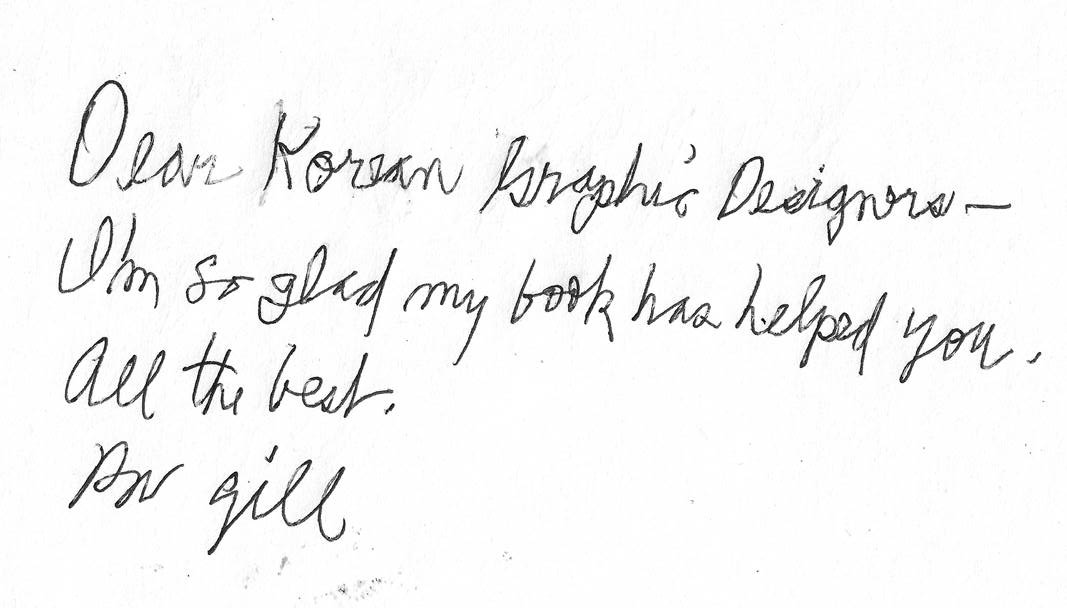 Dear Korean Graphic Designers—
I'm so glad my book has helped you.
All the best.
gill